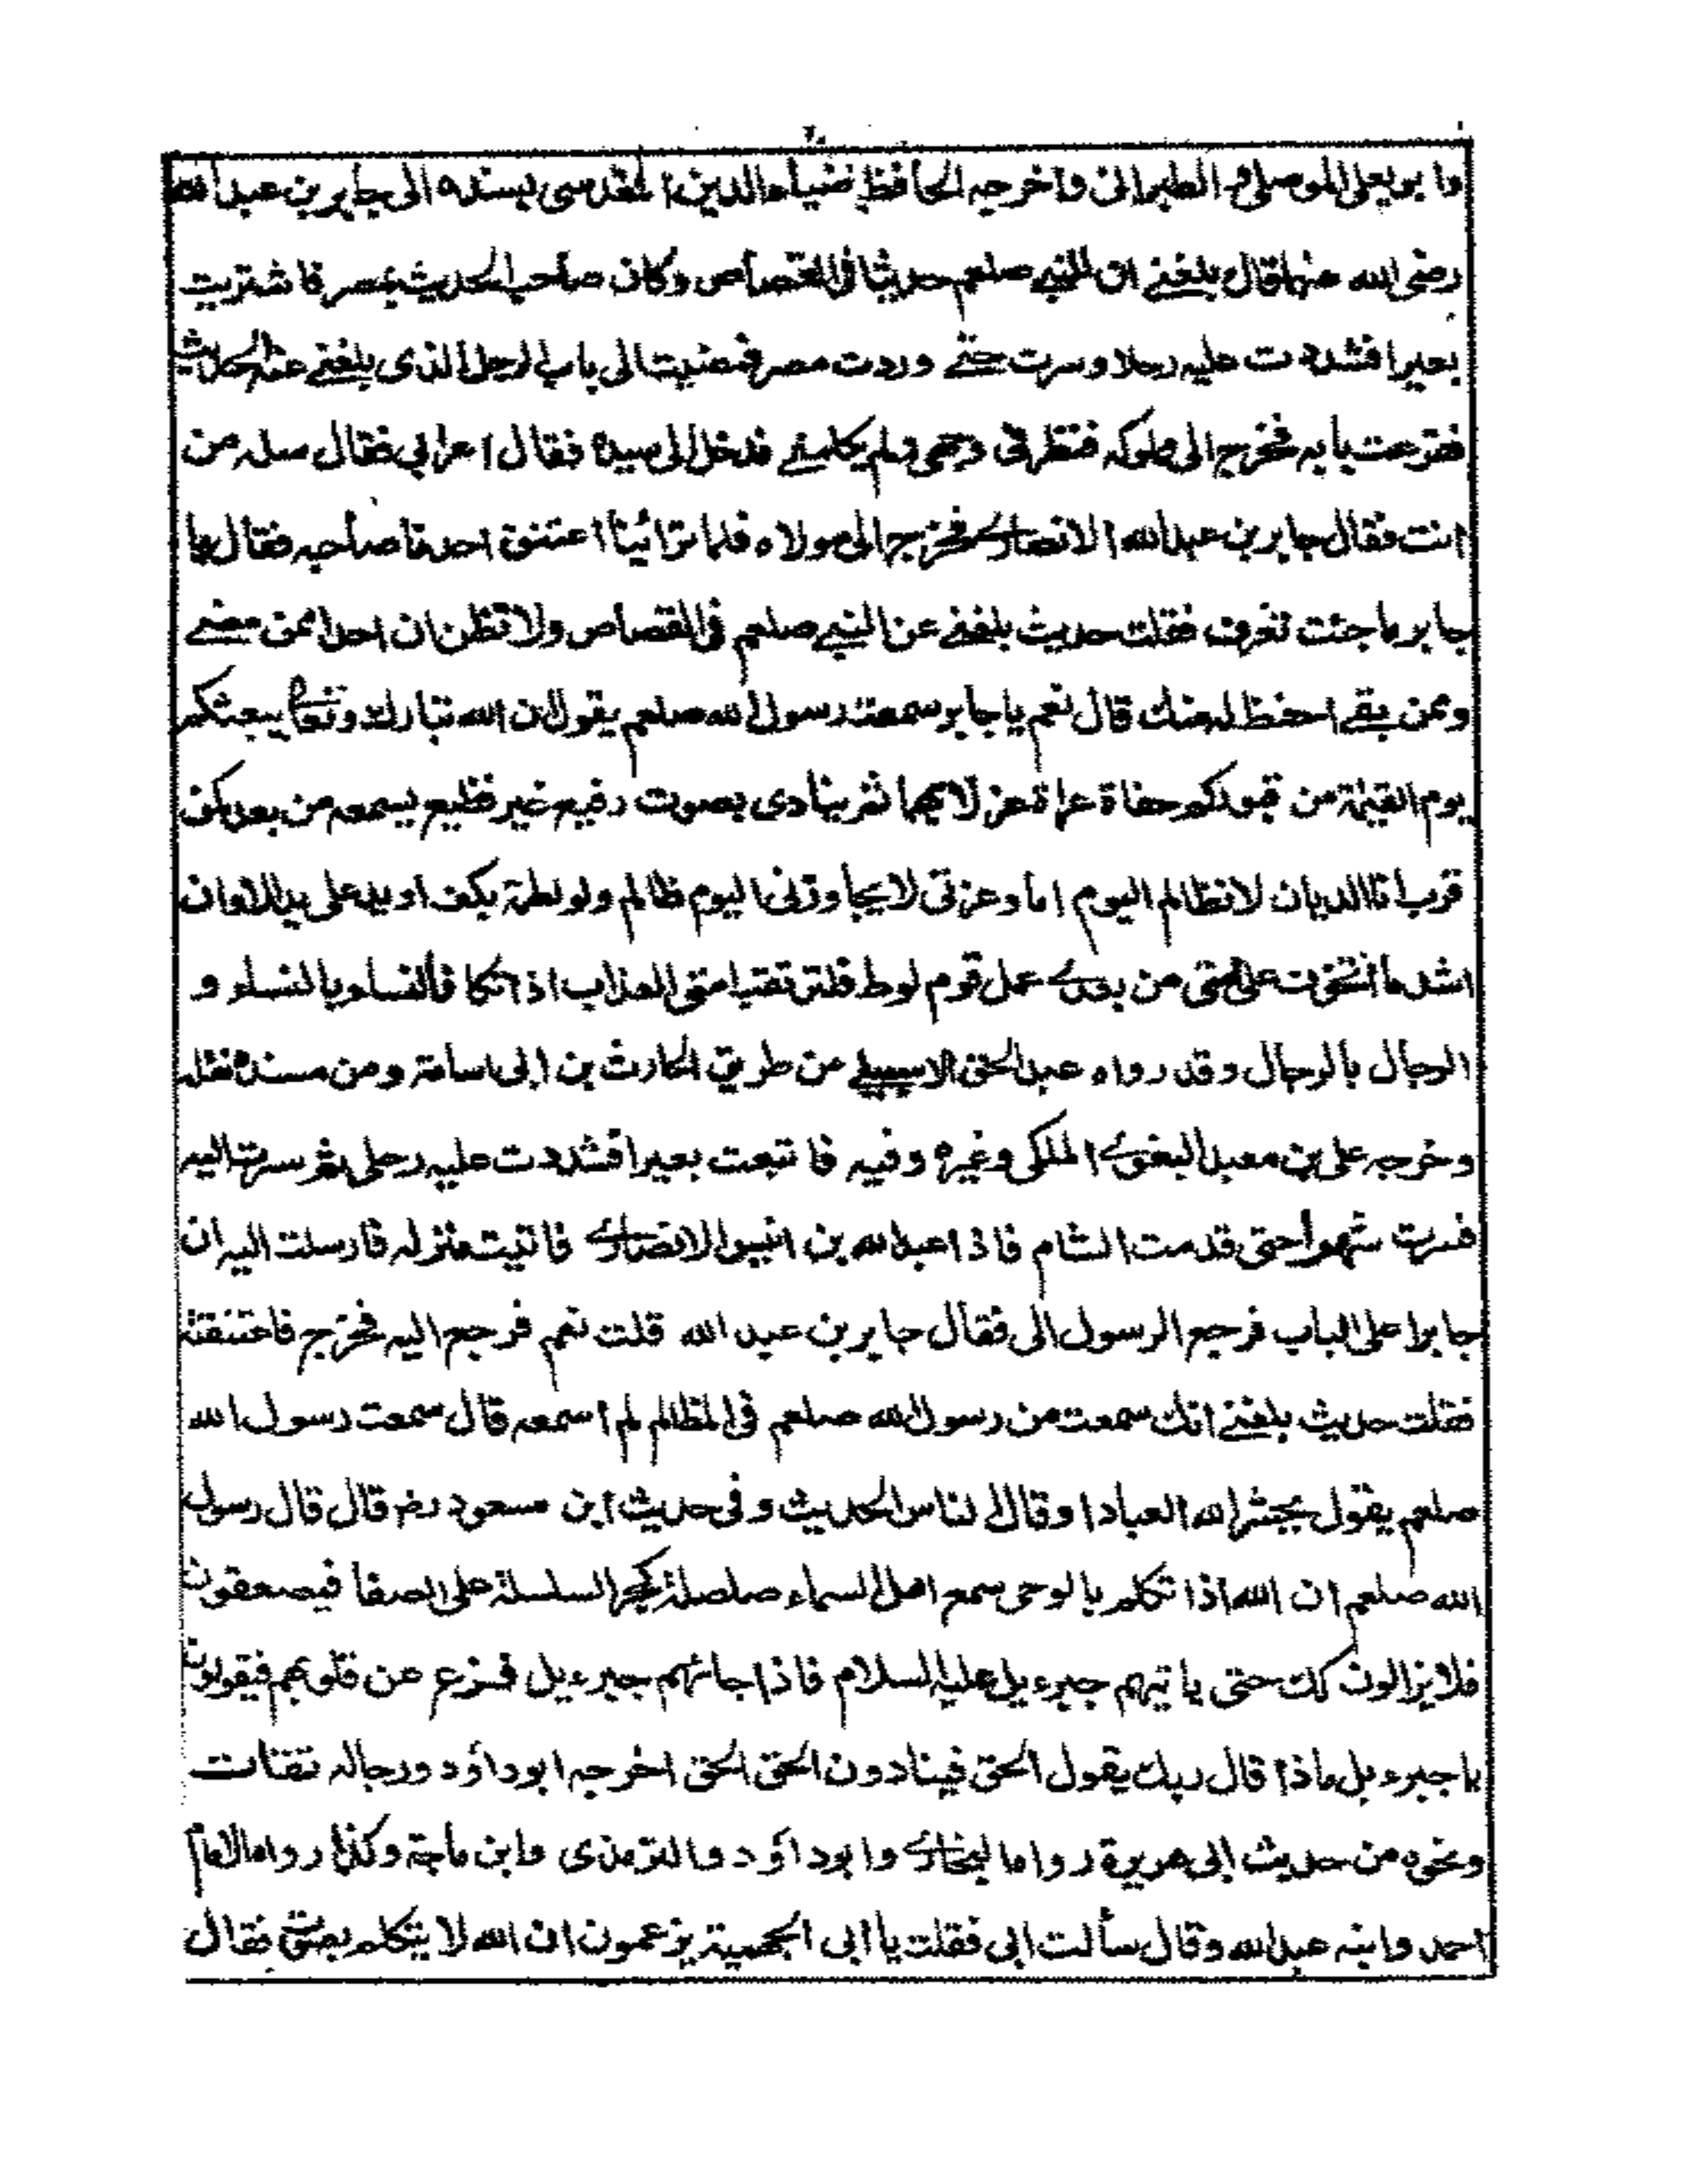 وابو يعلى الموصلى والطبرانى واخرجه الحافظ ضياء الدين المقدسى بسنده الى جابر بن عبدالله
رضى الله عنهما قال بلغنى ان للنبى صلعم حديثا فى القصاص وكان صاحب الحديث بمصر فاشتريت
بعيرا فشددت عليه رحلا وسرت حتى وردت مصر فمضيت الى باب الرجل الذى بلغنى عنه الحديث
فقرعت بابه فخرج الى مملوكه فنظر فى وجهى ولم يكلمنى فدخل الى سيده فقال اعرابى فقال سله من
انت فقال جابر بن عبدالله الانصارى فخرج الى مولاه فلما ترائينا اعتنق احدنا صاحبه فقال يا
جابر ما جئت تعرف فقلت حديث بلغنى عن النبى صلعم فى القصاص ولا تظن ان احدا ممن مضى
وممن بقى احفظ له منك قال نعم يا جابر سمعت رسول الله صلعم يقول ان الله تبارك وتعالى يبعثكم
يوم القيمة من قبوركم حفاة عراة عزلا بهما ثم ينادى بصوت رفيع غير فظيع يسمعه من بعد كمن
قرب انا الديان لا تظالم اليوم اما وعزتى لا يجاوزنى اليوم ظالم ولو لطمة بكف او يد على يد الا وان
اشد ما اتخوف على امتى من بعدى عمل قوم لوط فلترتقب امتى العذاب اذا تكافأ النساء بالنساء و
الرجال بالرجال وقد رواه عبدالحق الاسبيلى من طريق الحارث بن ابى اسامة ومن مسنده نقله
وخرجه على بن معبد البغوى المكى وغيره وفيه فاتبعت بعيرا فشددت عليه رحلى ثم سرت اليه
فسرت شهرا حتى قدمت الشام فاذا عبدالله بن انيس الانصارى فاتيت منزله فارسلت اليه ان
جابرا على الباب فرجع الرسول الى فقال جابر بن عبد الله قلت نعم فرجع اليه فخرج فاعتنقته
فقلت حديث بلغنى انك سمعت من رسول الله صلعم فى المظالم لم اسمعه قال سمعت رسول الله
صلعم يقول يحشر الله العباد او قال الناس الحديث وفى حديث ابن مسعود رضـ قال قال رسول
الله صلعم ان الله اذا تكلم بالوحى سمع اهل السماء صلصلة كجر السلسلة على الصفا فيصعقون
فلا يزالون كك حتى ياتيهم جبرءيل عليه السلام فاذا جائهم جبرءيل فزع عن قلوبهم فيقولون
يا جبرءيل ماذا قال ربك يقول الحق فينادون الحق الحق اخرجه ابوداؤد ورجاله ثقات
ونحوه من حديث ابى هريرة رواه البخارى وابوداؤد والترمذى وابن ماجة وكذا رواه الامام
احمد وابنه عبدالله وقال سألت ابى فقلت يا ابى الجهمية يزعمون ان الله لا يتكلم بصوت فقال